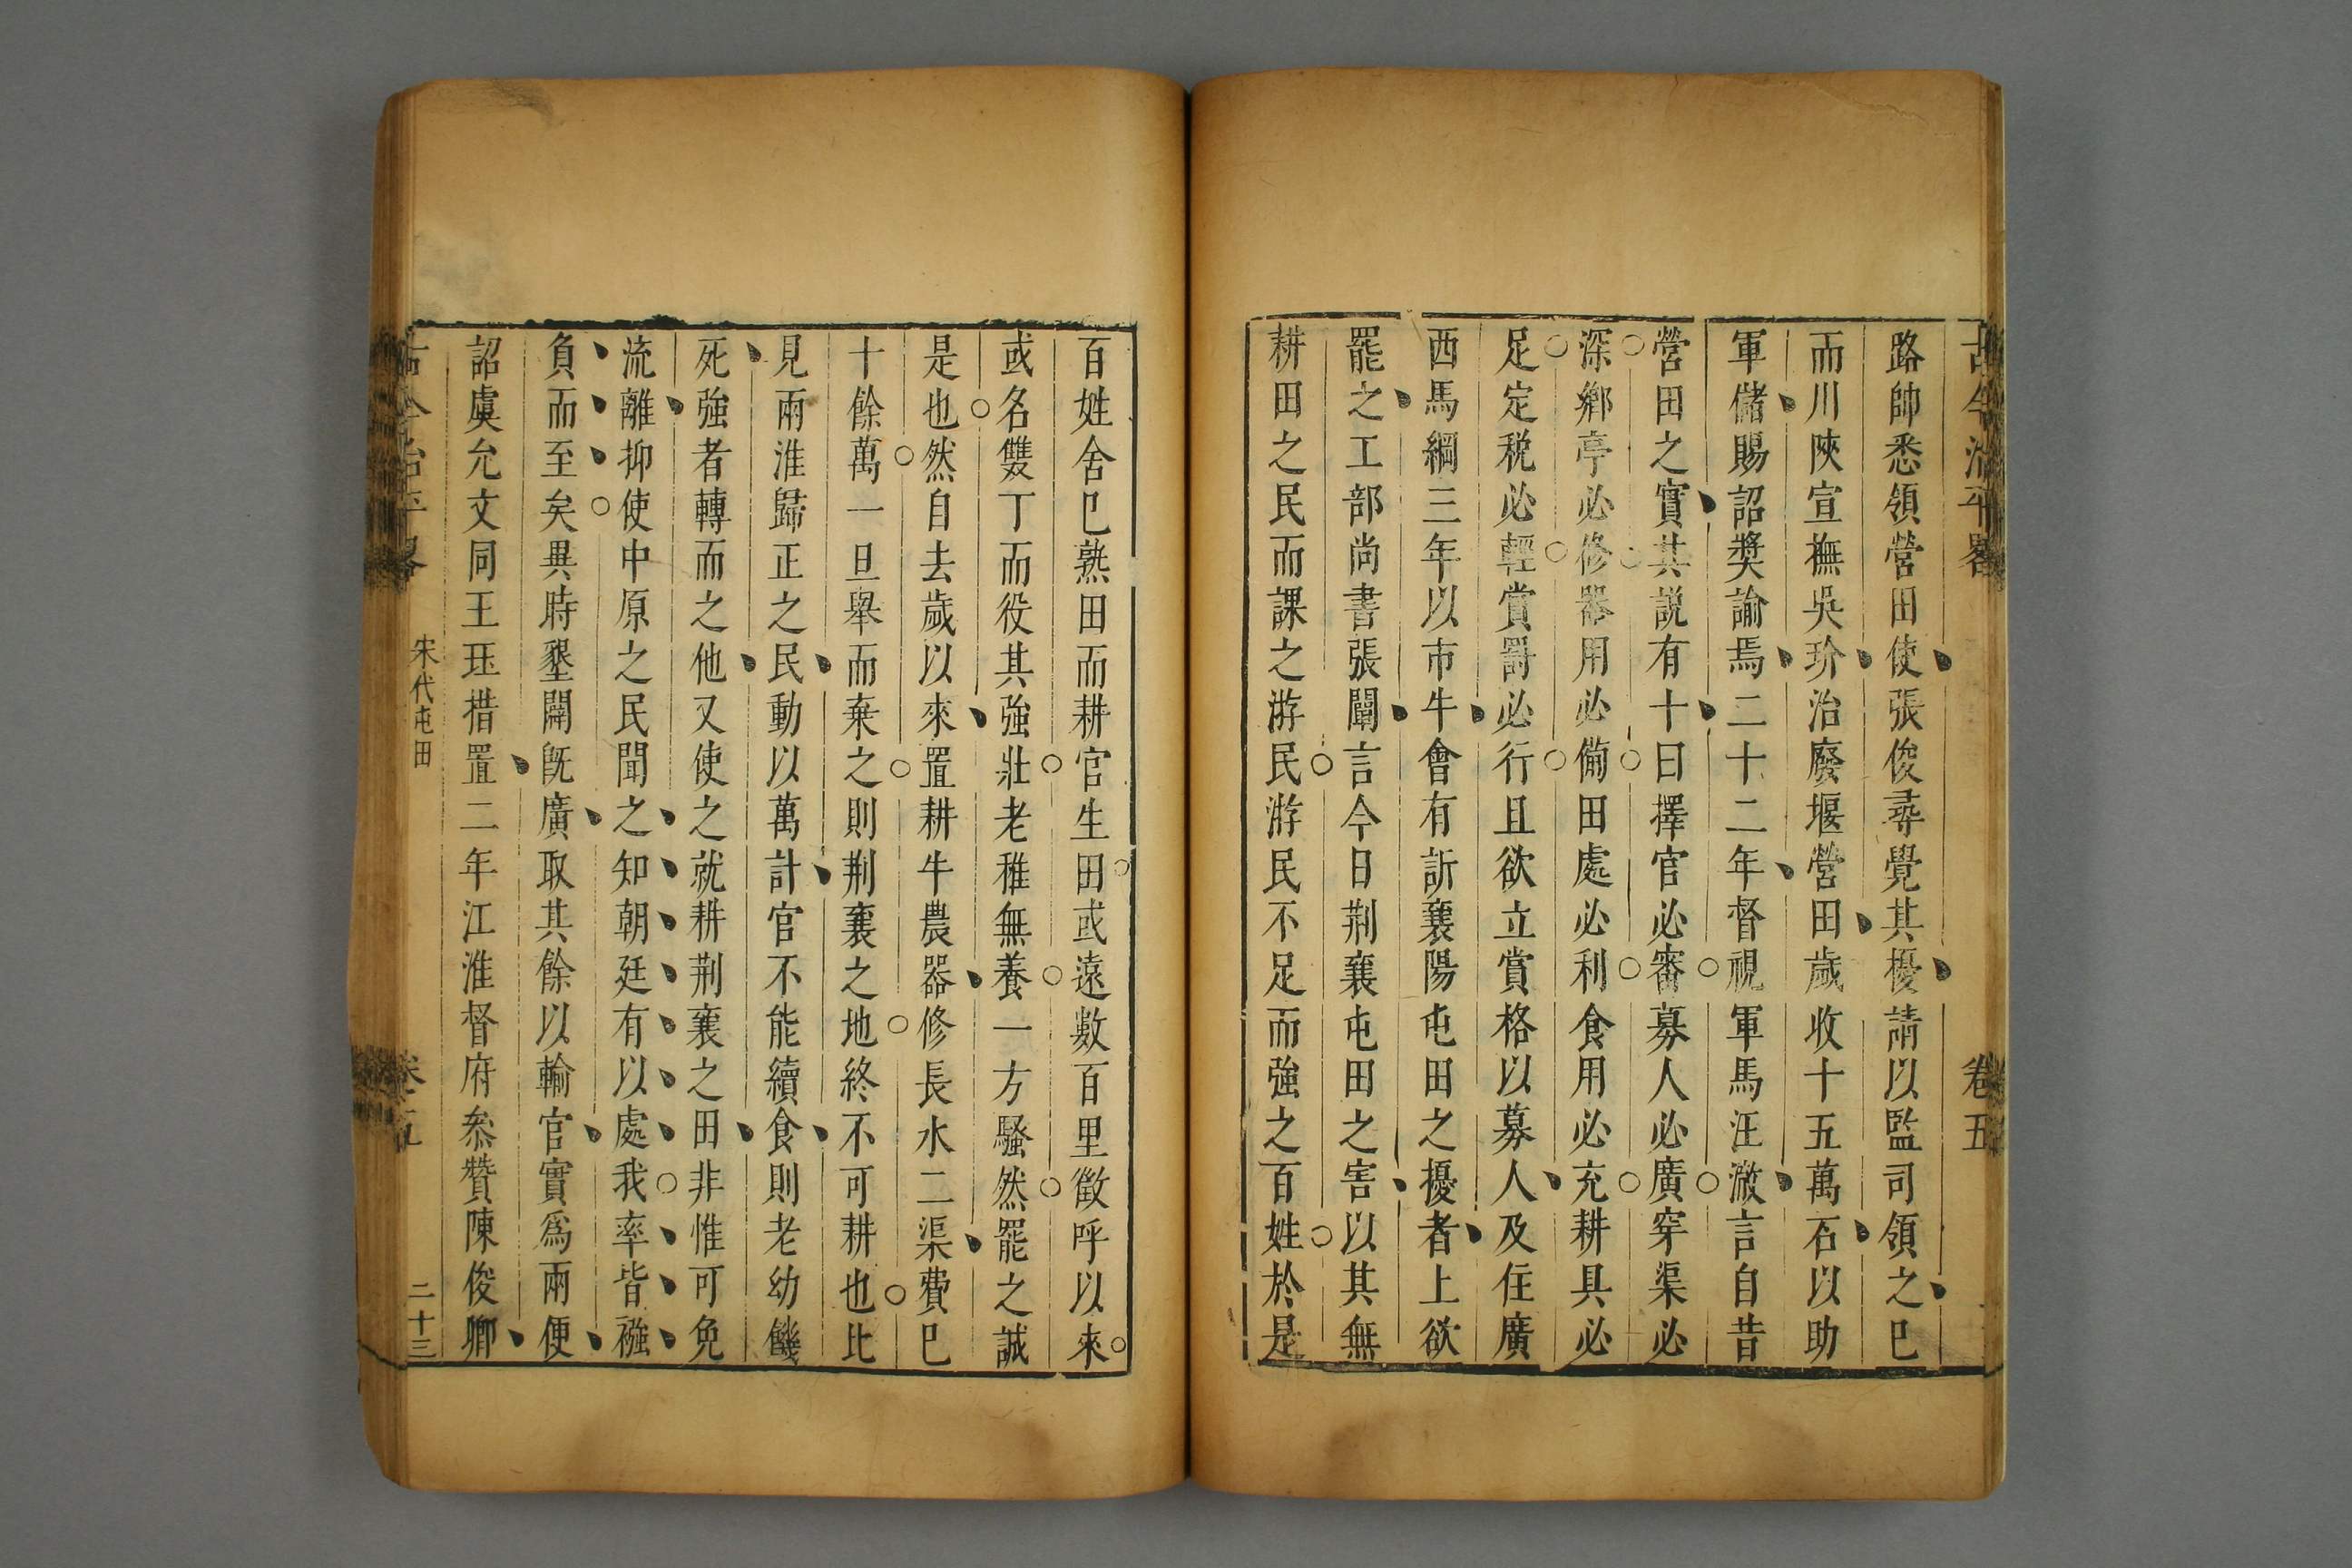 古今治平畧 卷五
路帥悉領營田使張俊尋覺其擾請以監司領之巳
而川陝宣撫吳玠治廢堰營田歲收十五萬石以助
軍儲賜詔奬諭焉二十二年督視軍馬汪澈言自昔
營田之實其説有十曰擇官必審募人必廣穿渠必
深鄉亭必修器用必備田處必利食用必充耕具必
足定税必輕賞罰必行且欲立賞格以募人及住廣
西馬綱三年以市牛會有訢襄陽屯田之擾者上欲
罷之工部尚書張闡言今日荆襄屯田之害以其無
耕田之民而課之游民游民不足而強之百姓於是
百姓舍巳熟田而耕官生田或遠數百里徵呼以來
或名雙丁而役其強壯老稚無養一方騷然罷之誠
是也然自去歲以來置耕牛農器修長水二渠費巳
十餘萬一旦舉而棄之則荆襄之地終不可耕也比
見兩淮歸正之民動以萬計官不能續食則老幼饑
死強者轉而之他又使之就耕荆襄之田非惟可免
流離抑使中原之民聞之知朝廷有以處我率皆襁
負而至矣異時墾闢既廣取其餘以輸官實爲兩便
詔虞允文同王珏措置二年江淮督府叅贊陳俊卿
古今治平畧 宋代屯田 卷五 二十三